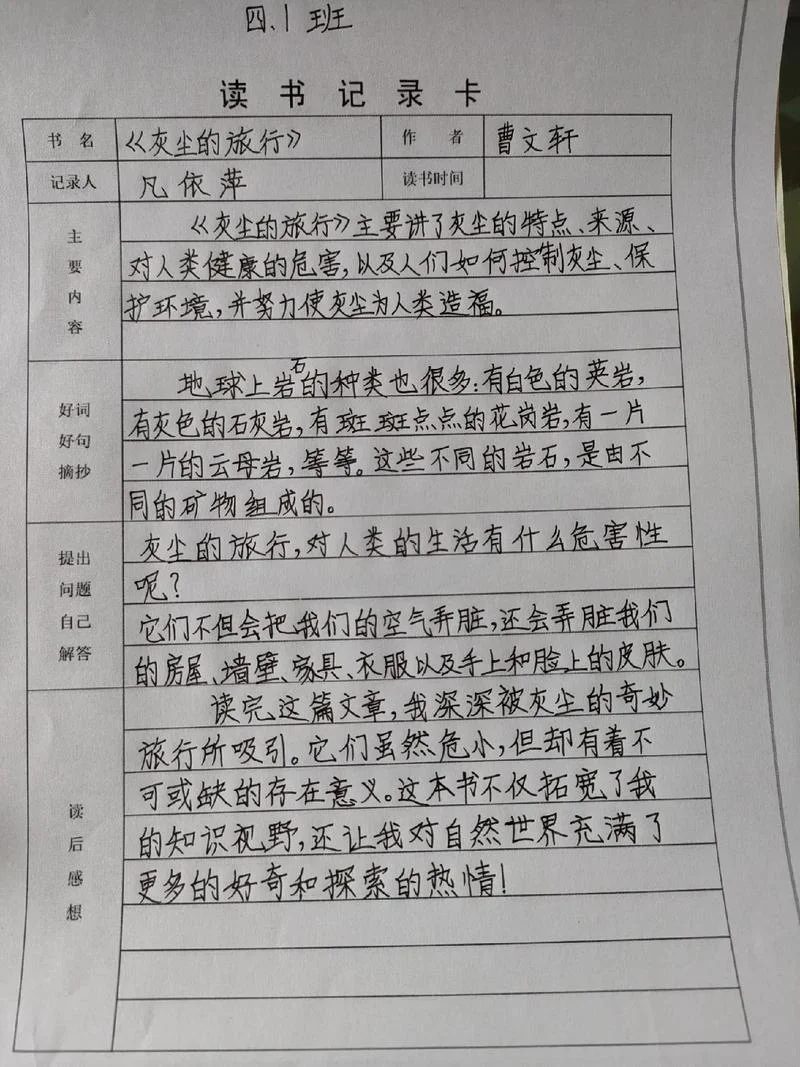 四.1班
读书记录卡
书名 《灰尘的旅行》 作者 曹文轩
记录人 凡依萍 读书时间
主要内容
《灰尘的旅行》主要讲了灰尘的特点、来源、
对人类健康的危害,以及人们如何控制灰尘、保
护环境,并努力使灰尘为人类造福。
好词好句摘抄
地球上岩石的种类也很多:有白色的英岩,
有灰色的石灰岩,有斑斑点点的花岗岩,有一片
一片的云母岩,等等。这些不同的岩石,是由不
同的矿物组成的。
提出问题自己解答
灰尘的旅行,对人类的生活有什么危害性
呢?
它们不但会把我们的空气弄脏,还会弄脏我们
的房屋、墙壁、家具、衣服以及手上和脸上的皮肤。
读后感想
读完这篇文章,我深深被灰尘的奇妙
旅行所吸引。它们虽然危小,但却有着不
可或缺的存在意义。这本书不仅拓宽了我
的知识视野,还让我对自然世界充满了
更多的好奇和探索的热情!